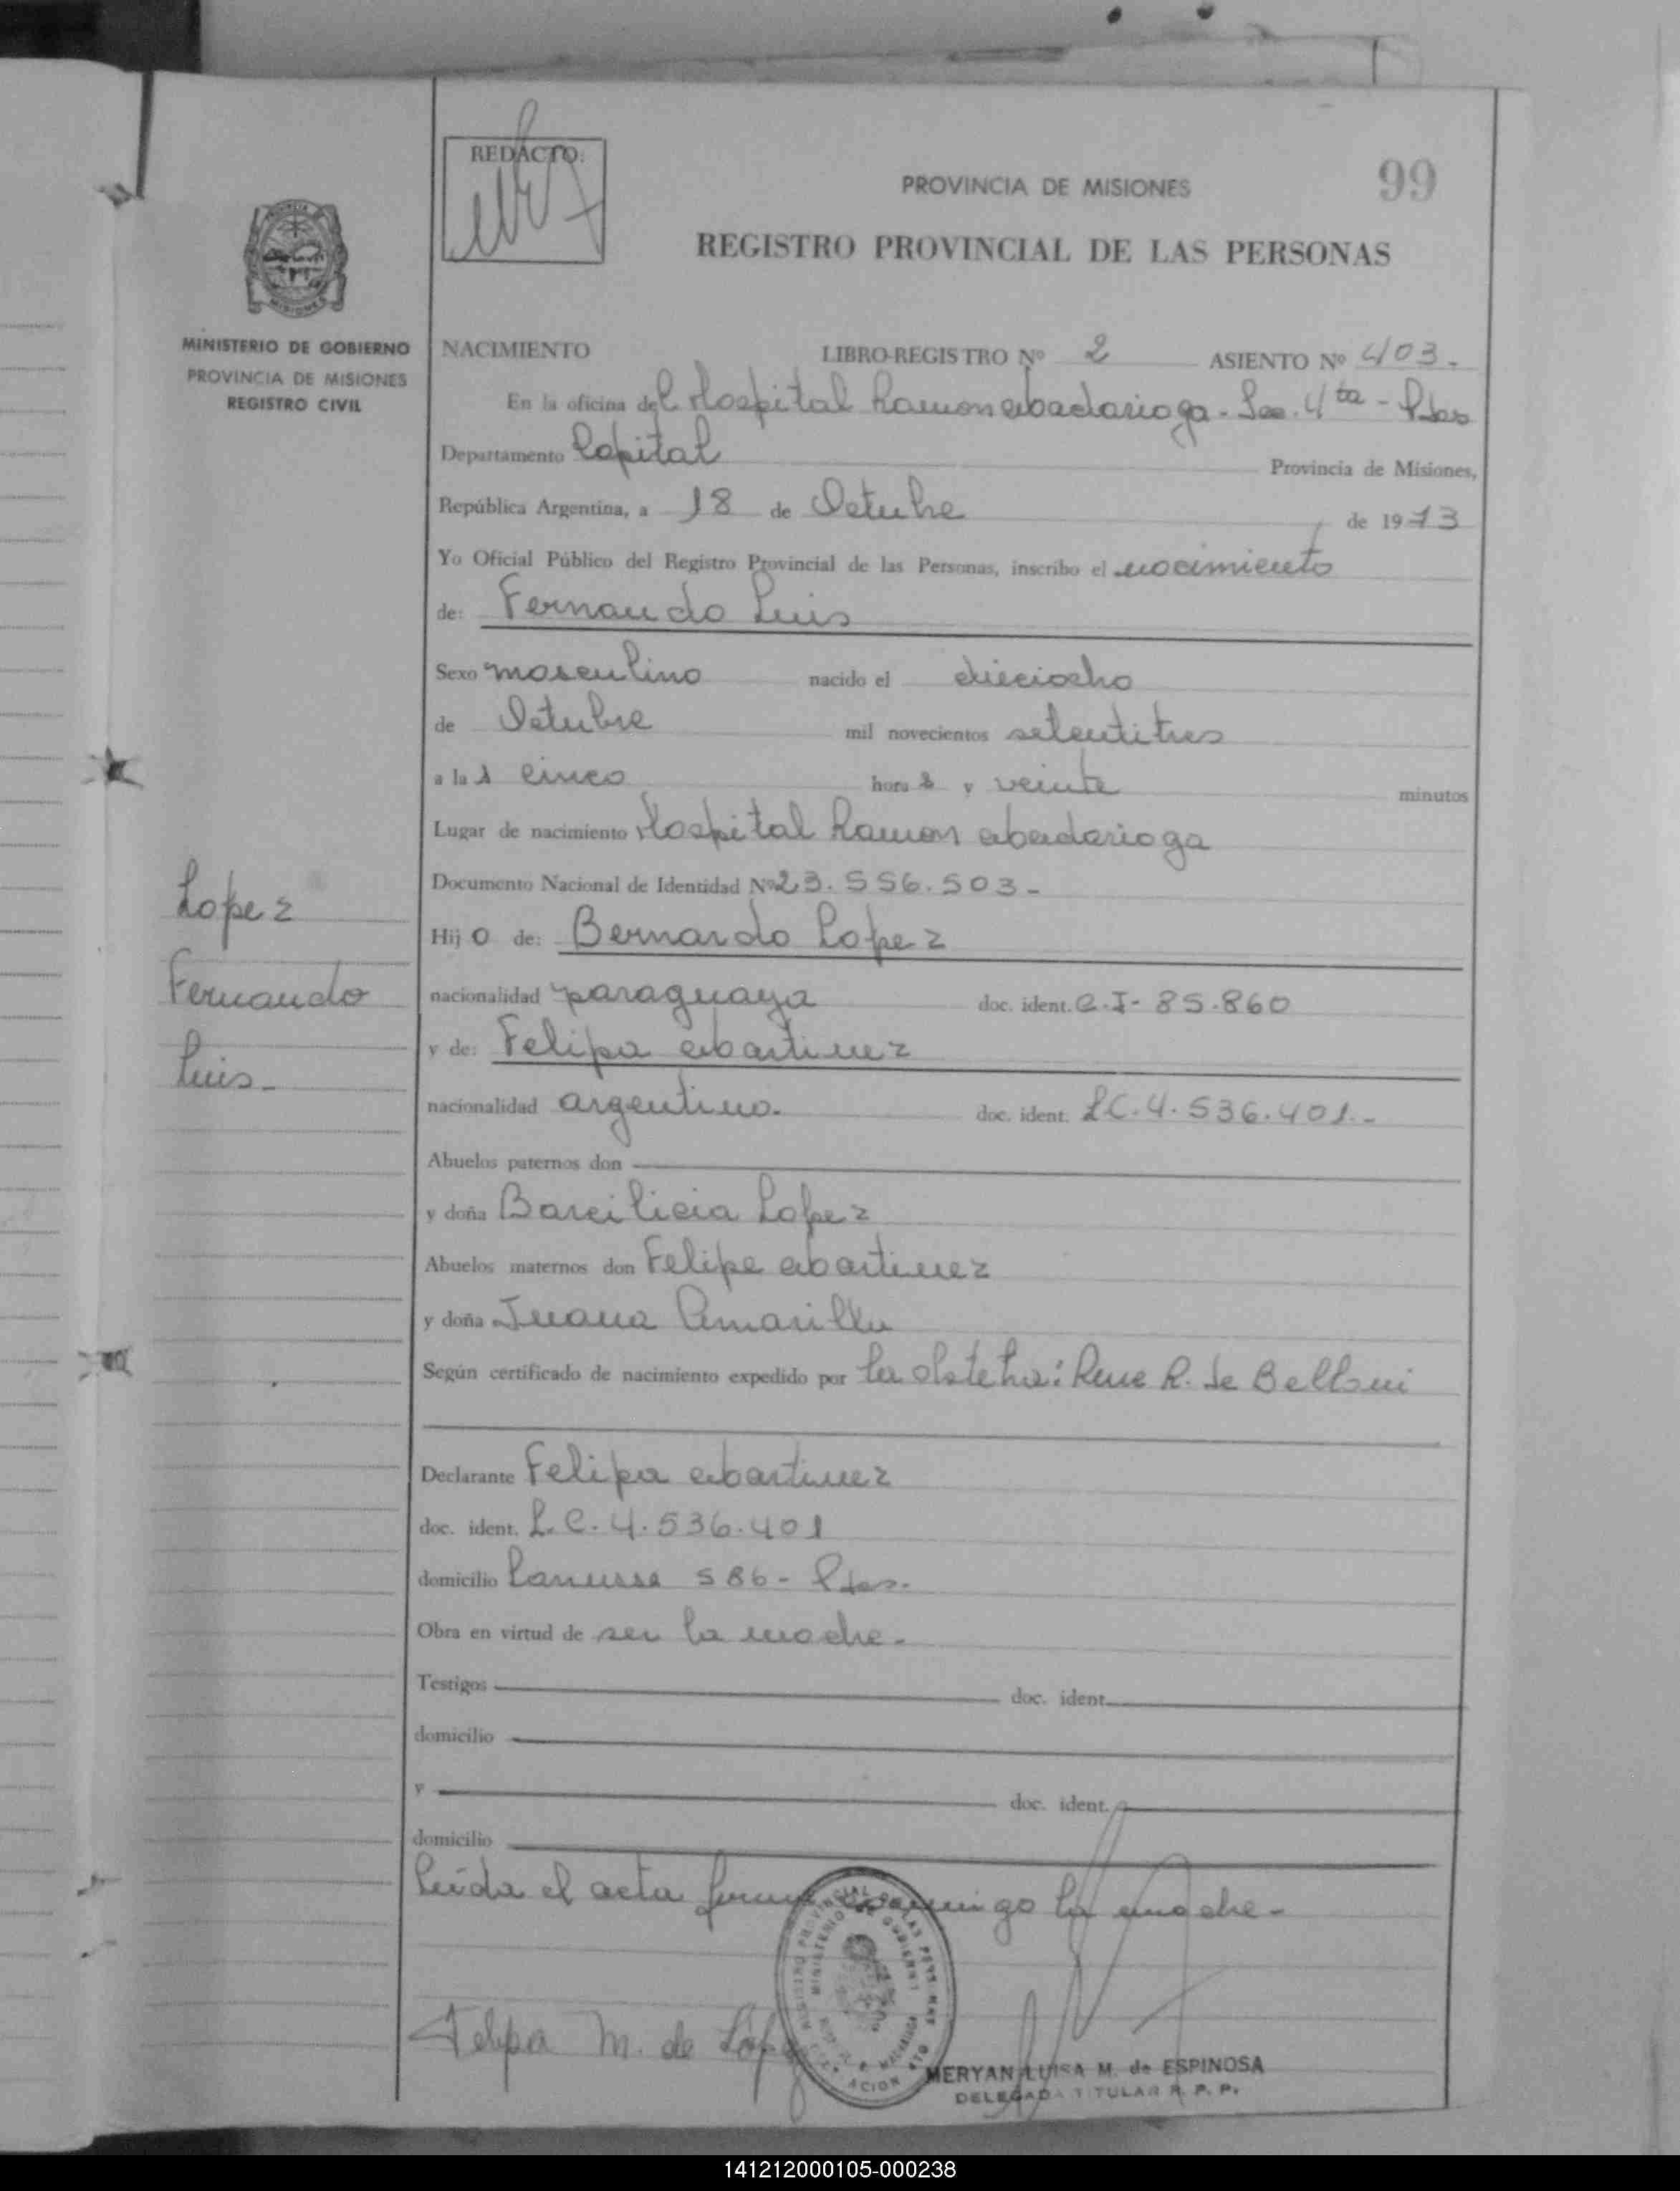 REDACTO:
PROVINCIA DE MISIONES
99
REGISTRO PROVINCIAL DE LAS PERSONAS
MINISTERIO DE GOBIERNO
PROVINCIA DE MISIONES
REGISTRO CIVIL
NACIMIENTO LIBRO-REGISTRO Nº 2 ASIENTO Nº 403.-
En la oficina del Hospital Ramon Madariaga - Sec. 4ta - Pdas
Departamento Capital Provincia de Misiones,
República Argentina, a 18 de Octubre de 1973
Yo Oficial Público del Registro Provincial de las Personas, inscribo el nacimiento
de: Fernando Luis
Sexo masculino nacido el dieciocho
de Octubre mil novecientos setentitres
a las cinco horas y veinte minutos
Lugar de nacimiento Hospital Ramon Madariaga
Documento Nacional de Identidad Nº 23.556.503-
Hijo de: Bernardo Lopez
nacionalidad paraguaya doc. ident. C.I- 85.860
y de: Felipa Martinez
nacionalidad argentina. doc. ident. L.C. 4.536.401.-
Abuelos paternos don
y doña Barcilicia Lopez
Abuelos maternos don Felipe Martinez
y doña Juana Amarilla
Según certificado de nacimiento expedido por la obstetra: Rene R. de Belloni
Declarante Felipa Martinez
doc. ident. L.C. 4.536.401
domicilio Lanusse 586- Pdas.
Obra en virtud de ser la madre.
Testigos doc. ident.
domicilio
y doc. ident.
domicilio
Leida el acta firma conmigo la madre.-
Lopez
Fernando
Luis-
Felipa M. de López
MERYAN LUISA M. de ESPINOSA
DELEGADA TITULAR R. P. P.
141212000105-000238